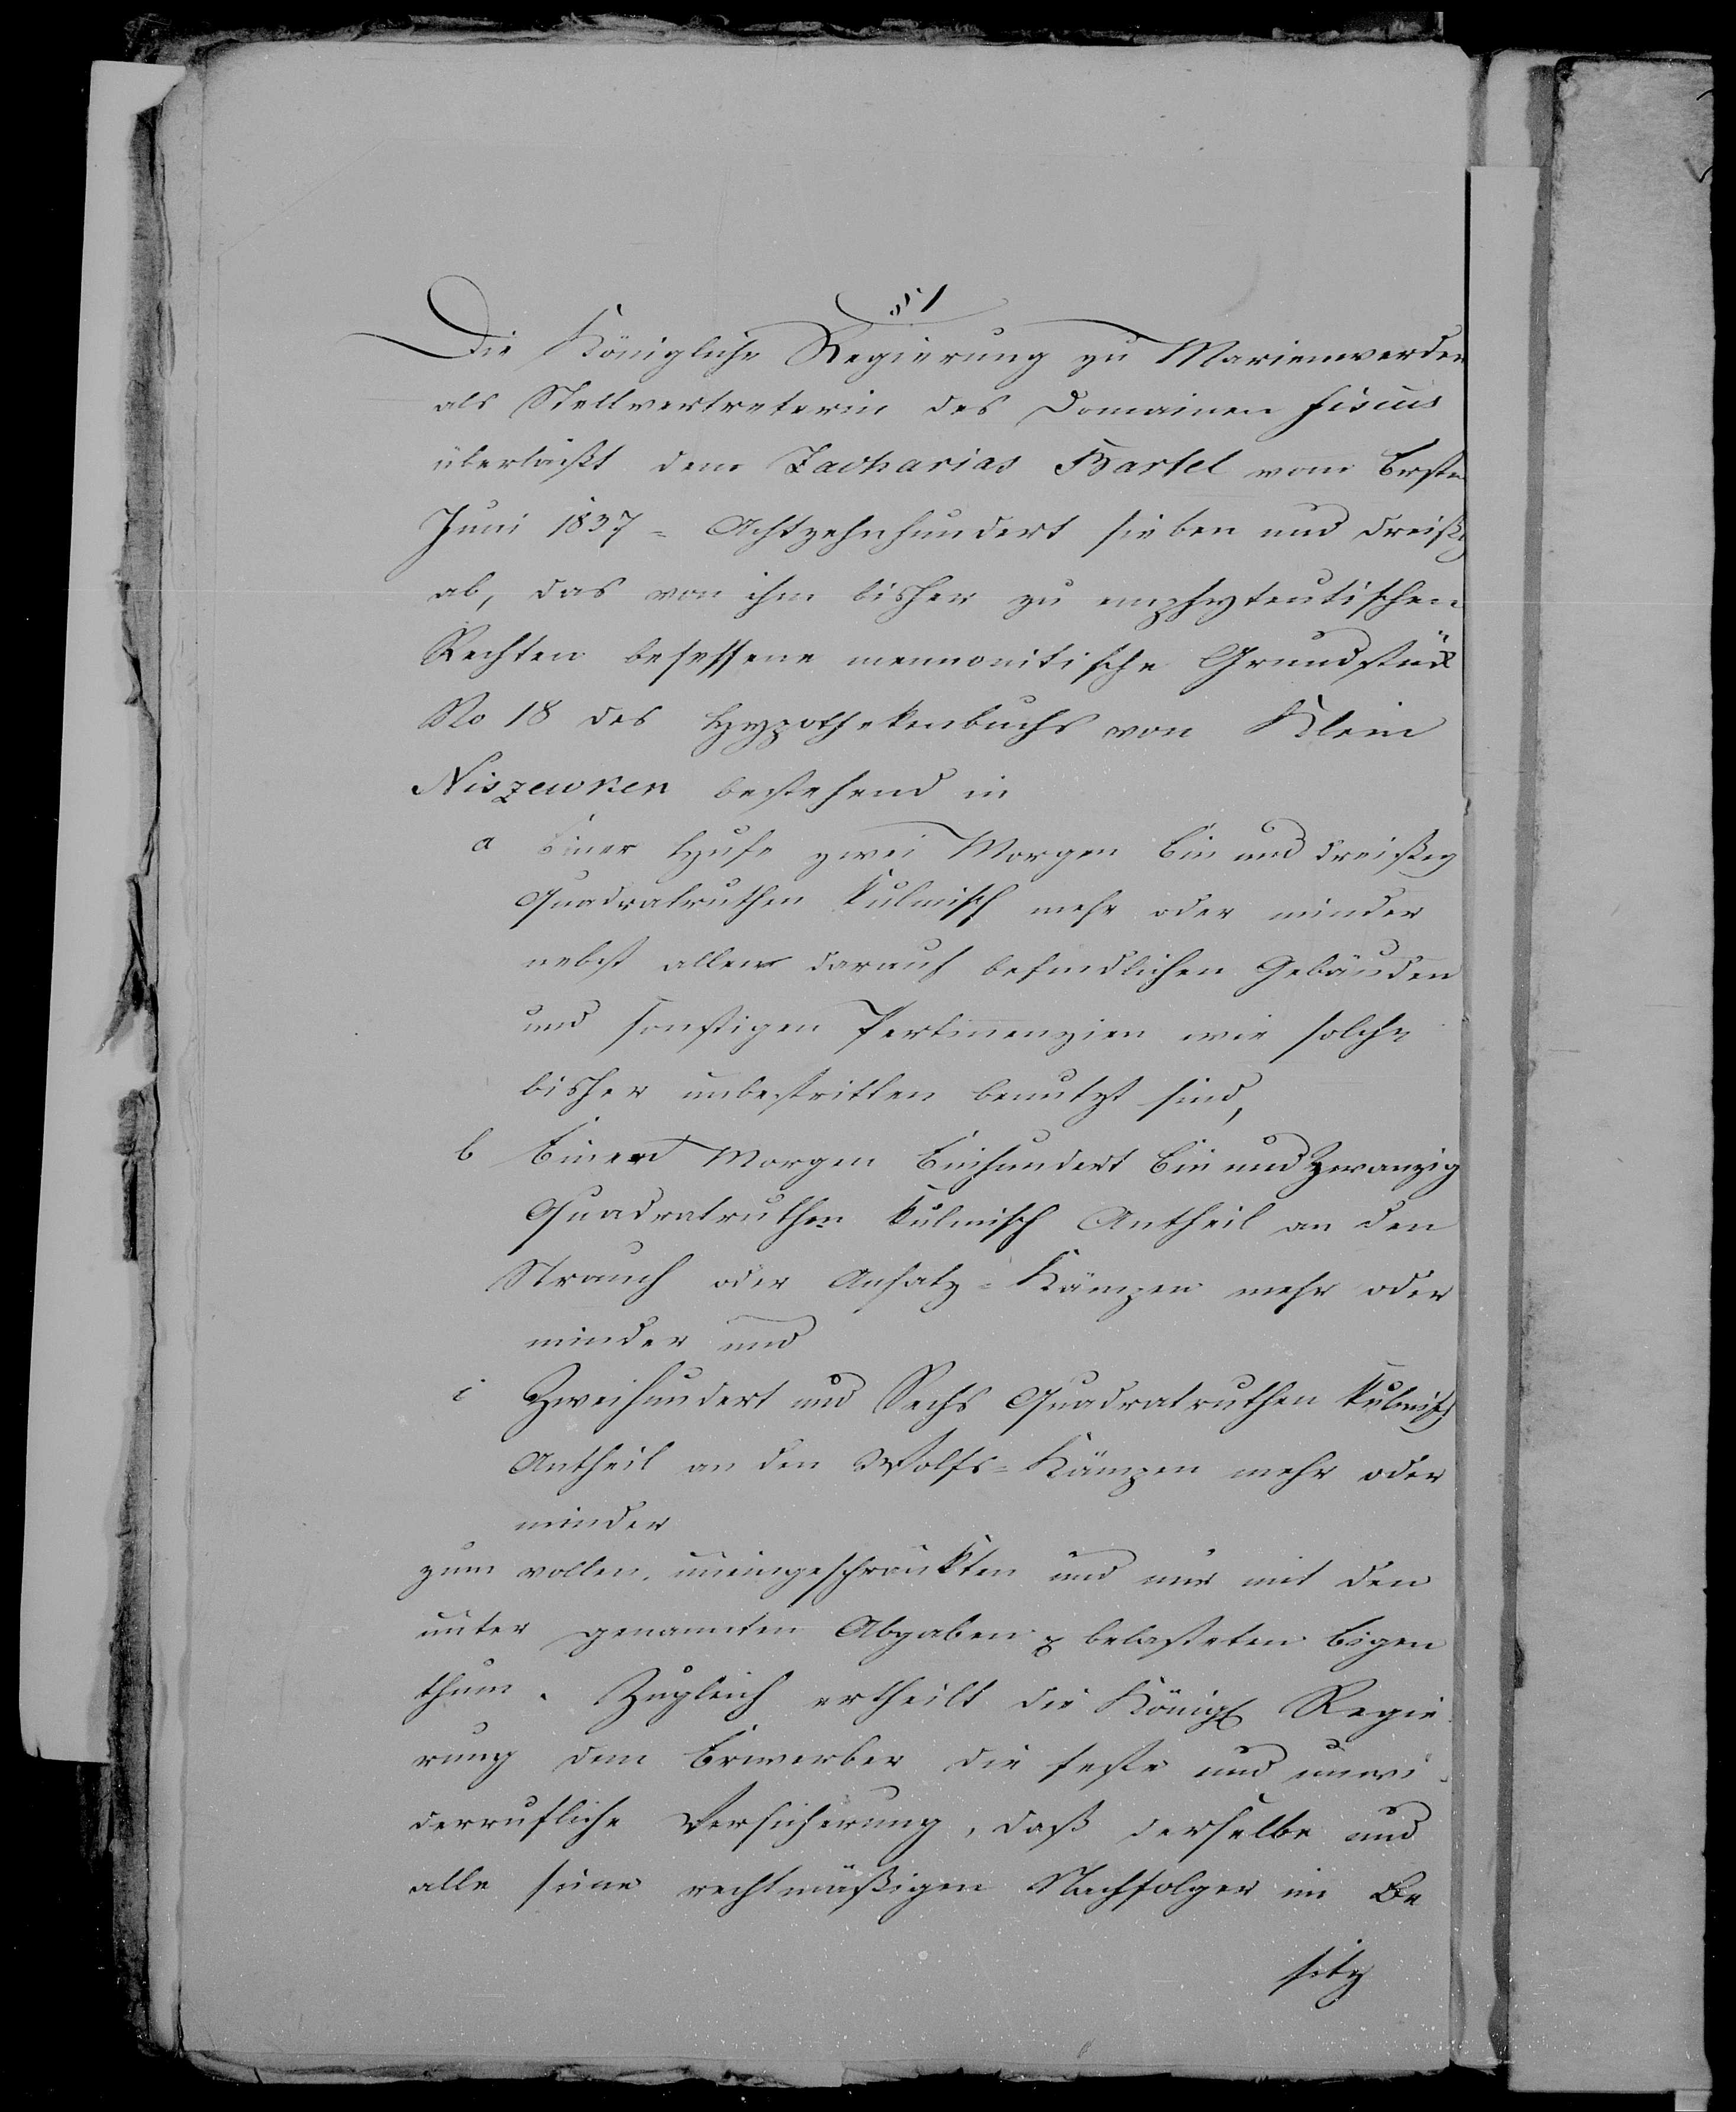 § 1
Die Königliche Regierung zu Marienwerder
als Stellvertreterin des Domainen Fiscus
überläßt dem Zacharias Bartel vom Ersten
Juni 1837 = Achtzehnhundert sieben und dreißig
ab, das von ihm bisher zu emphyteutischen
Rechten besessene mennonitische Grundstück
No 18 des Hypothekenbuchs von Klein
Niszewken bestehend in
a Einer Hufe zwei Morgen Ein und dreißig
Quadratruthen kulmisch mehr oder minder
nebst allen darauf befindlichen Gebäuden
und sonstigen Pertinenzien wie solche
bisher unbestritten benutzt sind,
b Einen Morgen Einhundert Ein und Zwanzig
Quadratruthen kulmisch Antheil an den
Strauch oder Ansatz=Kämpen mehr oder
minder und
c Zweihundert und Sechs Quadratruthen kulmisch
Antheil an den Wolfs=Kämpen mehr oder
minder
zum vollen, uneingeschränkten und nur mit den
unter genannten Abgaben belasteten Eigen
thum. Zugleich ertheilt die Königl Regie
rung dem Erwerber die feste und unwi
derrufliche Versicherung, daß derselbe und
alle seine rechtmäßigen Nachfolger im Be
sitz